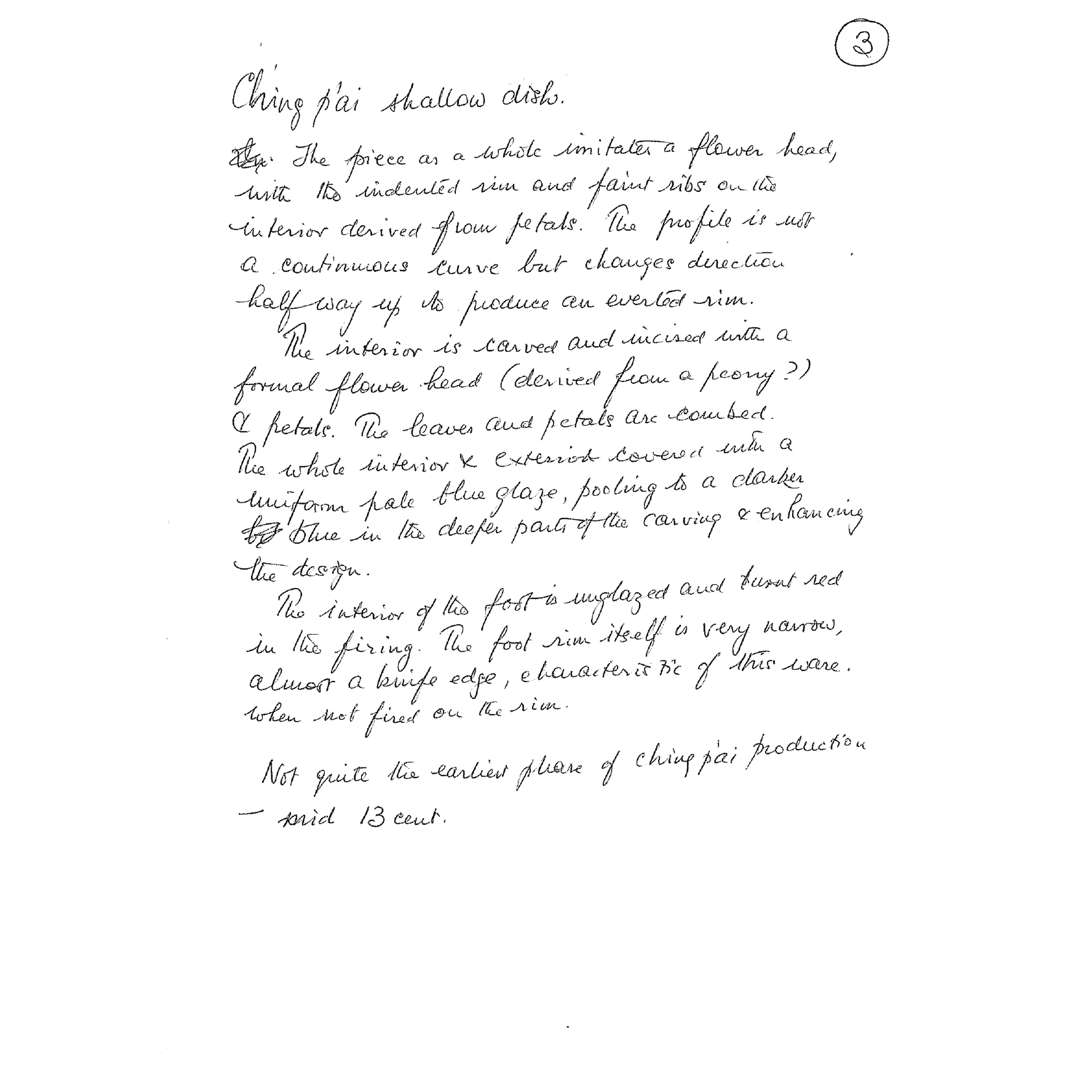 3
Ching p'ai shallow dish.
The piece as a whole imitates a flower head,
with the indented rim and faint ribs on the
interior derived from petals. The profile is not
a continuous curve but changes direction
half way up to produce an everted rim.
The interior is carved and incised with a
formal flower head (derived from a peony?)
& petals. The leaves and petals are combed.
The whole interior & exterior covered with a
uniform pale blue glaze, pooling to a darker
blue in the deeper parts of the carving & enhancing
the design.
The interior of the foot is unglazed and burnt red
in the firing. The foot rim itself is very narrow,
almost a knife edge, characteristic of this ware.
when not fired on the rim.
Not quite the earliest phase of ching p'ai production
— mid 13 cent.